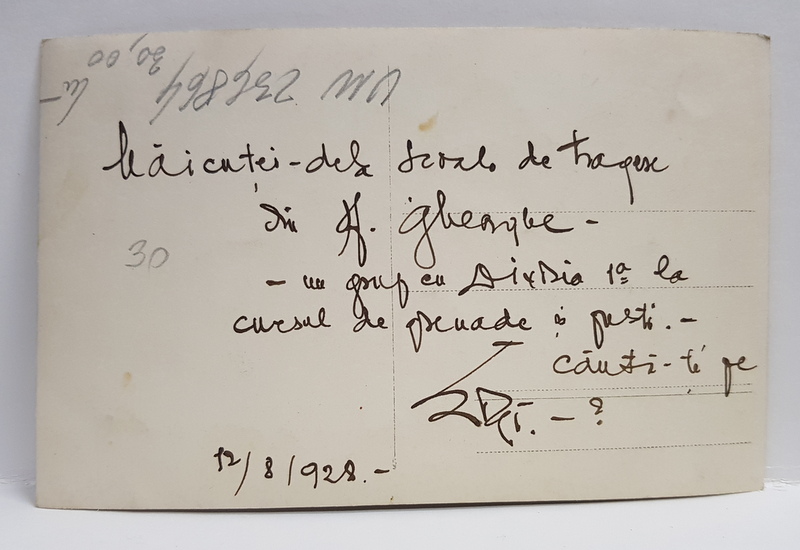 VM 236864
30,00
Măicuței-dela Scoala de tragere
din Sf. Gheorghe -
30
- un grup cu Divizia 1ª la
cursul de grenade și puști. -
căuti-te pe
- ?
12/8/928.-